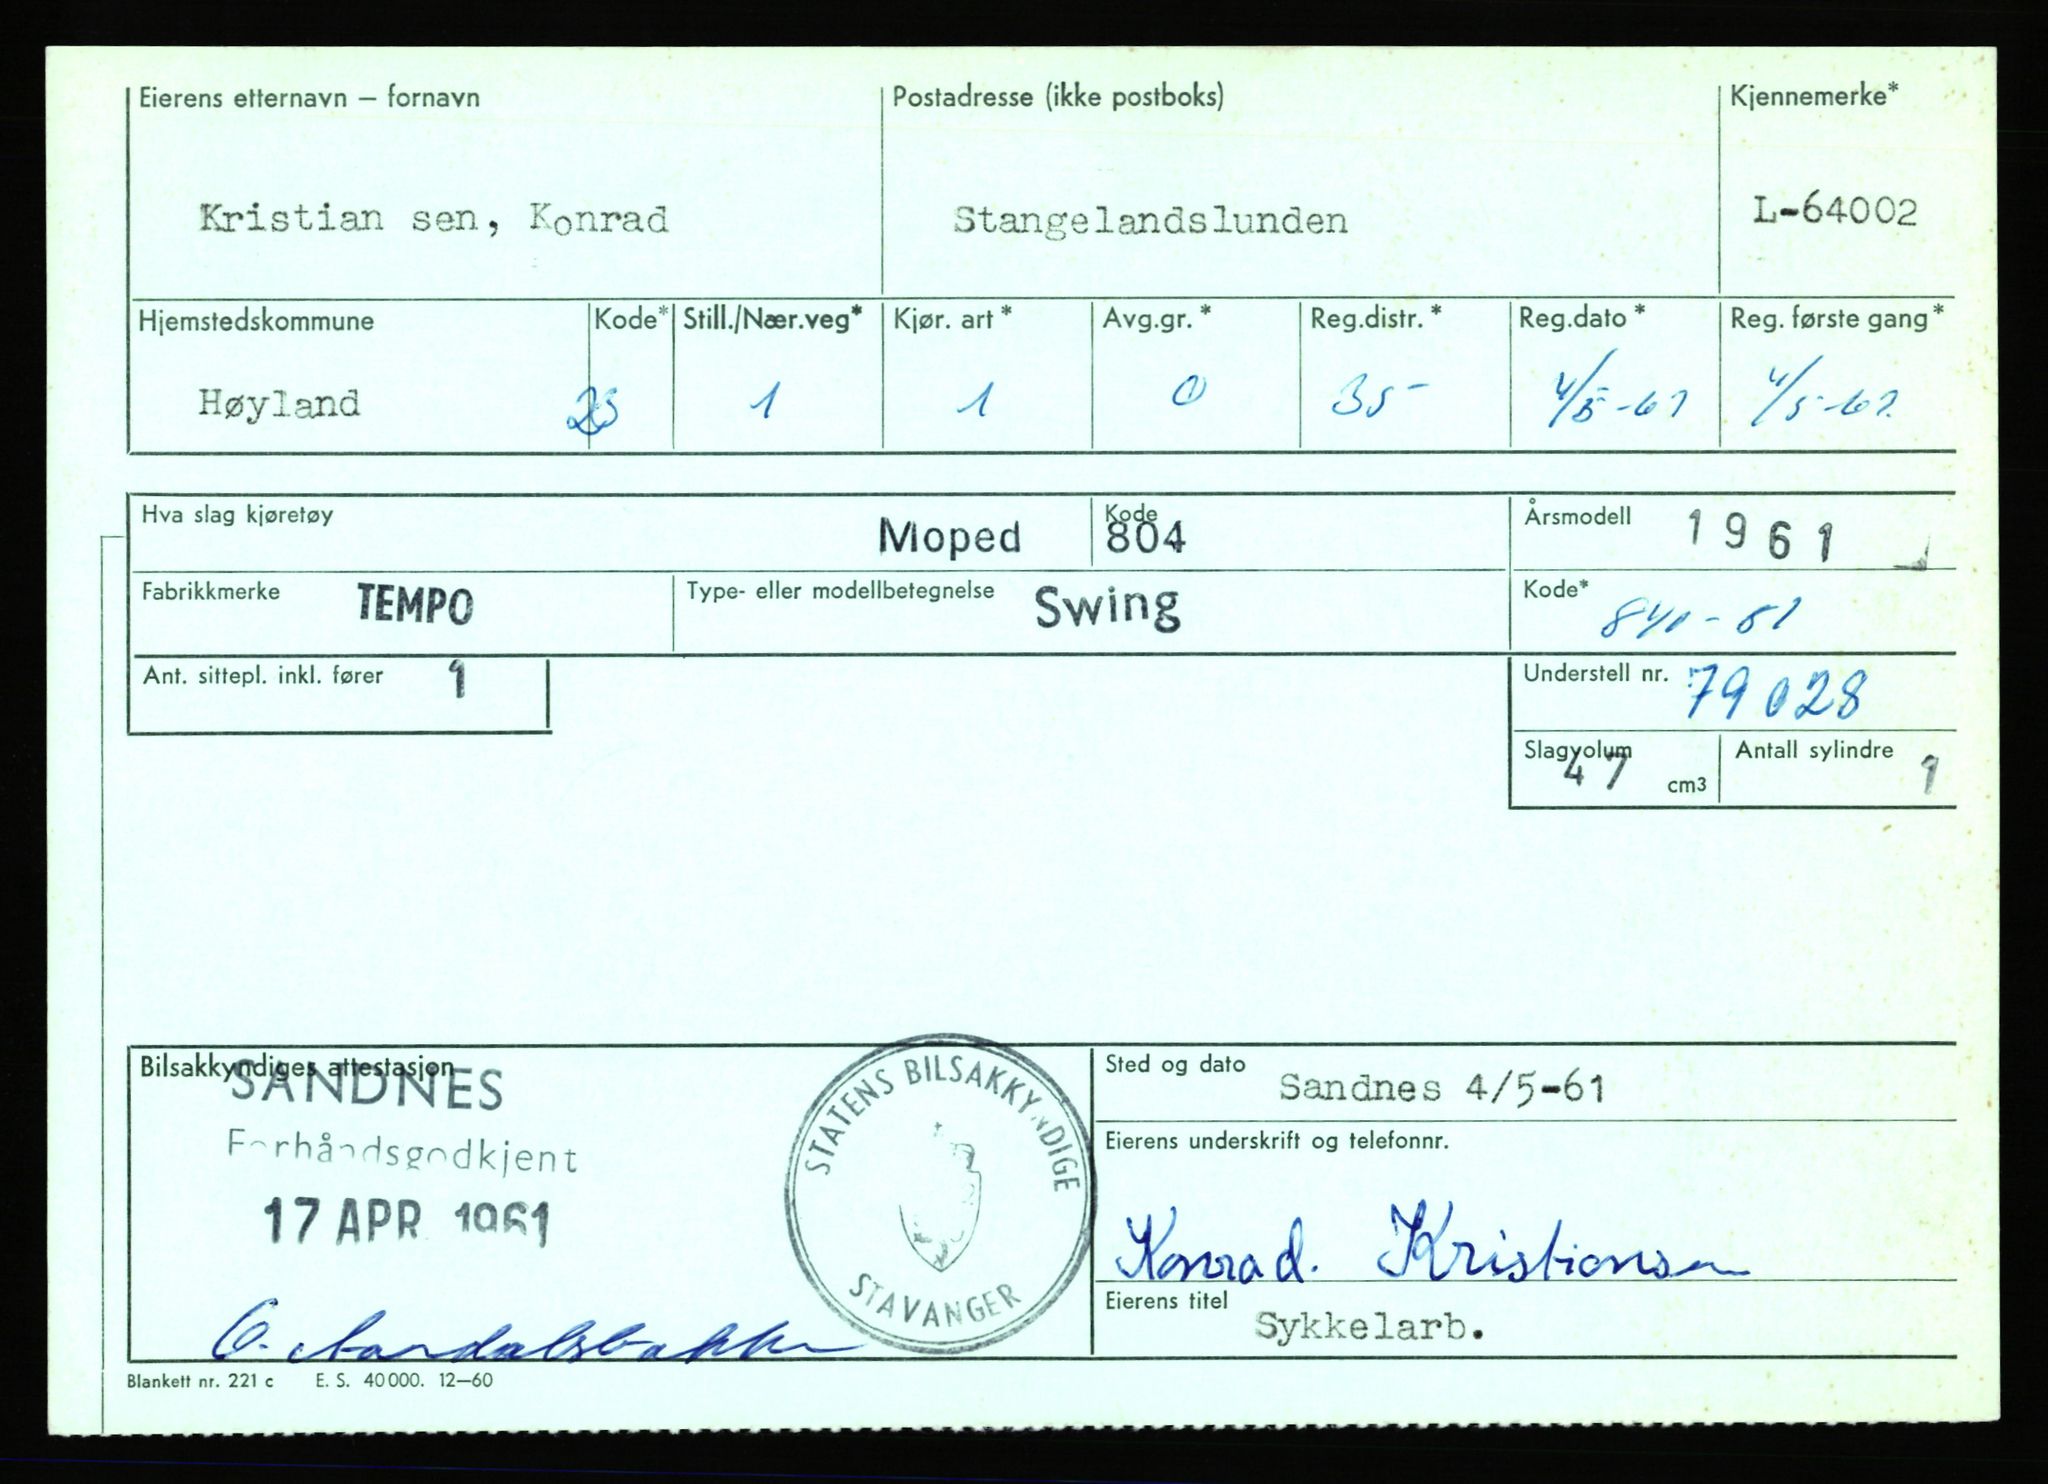 Eierens etternavn — fornavn
Postadresse (ikke postboks)
Kjennemerke*
Kristian sen, Konrad
Stangelandslunden
L-64002
Hjemstedskommune
Kode*
Still./Nær.veg*
Kjør. art *
Avg.gr. *
Reg.distr. *
Reg.dato *
Reg. første gang *
Høyland
23
1
1
0
35
4/5-61
4/5-61
Hva slag kjøretøy
Moped
Kode
804
Årsmodell
1961
Fabrikkmerke
TEMPO
Type- eller modellbetegnelse
Swing
Kode*
Ant. sittepl. inkl. fører
1
Understell nr.
79028
Slagvolum
47
cm3
Antall sylindre
1
Bilsakkyndiges attestasjon
SANDNES
Forhåndsgodkjent
17 APR 1961
STATENS BILSAKKYNDIGE
STAVANGER
Sted og dato
Sandnes 4/5-61
Eierens underskrift og telefonnr.
Konrad. Kristiansen
Eierens titel
Sykkelarb.
Blankett nr. 221 c E. S. 40 000. 12—60